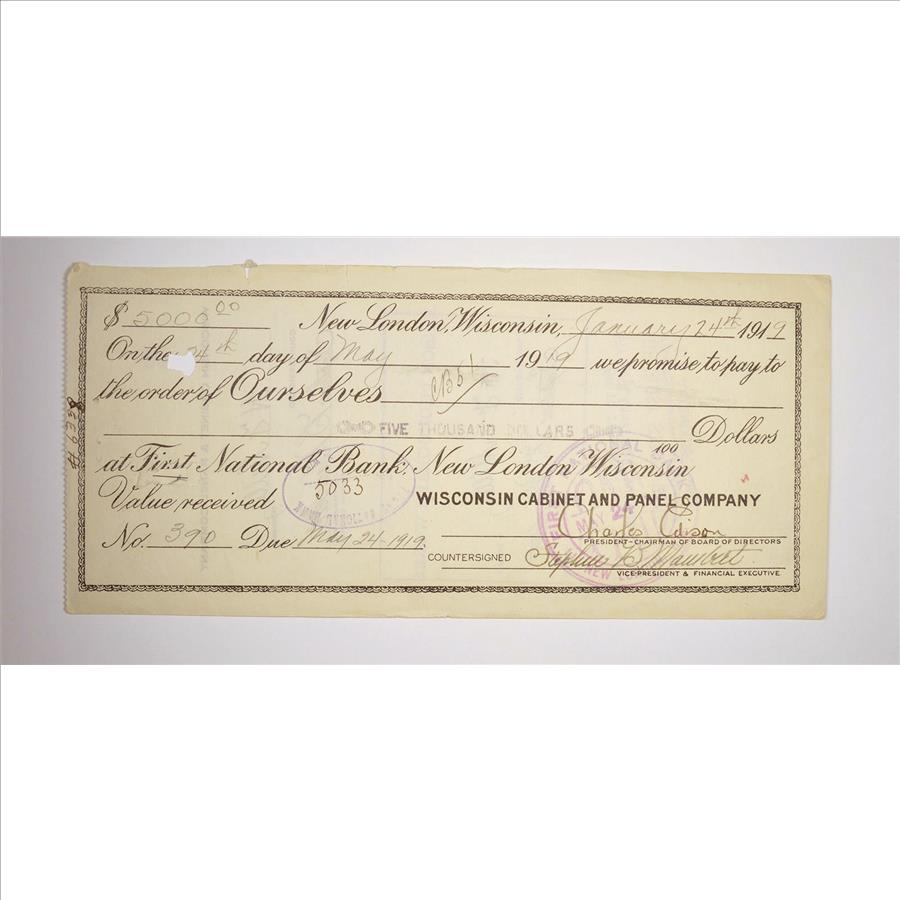 $ 5000 00 New London, Wisconsin, January 24th 1919
On the 24th day of May 1919 we promise to pay to
the order of Ourselves
FIVE THOUSAND DOLLARS 100 Dollars
at First National Bank, New London Wisconsin
Value received 5033 WISCONSIN CABINET AND PANEL COMPANY
MAY 24
Charles Edison
No. 390 Due May 24 1919. PRESIDENT-CHAIRMAN OF BOARD OF DIRECTORS
COUNTERSIGNED Stephen B.
VICE-PRESIDENT & FINANCIAL EXECUTIVE.
# 6338